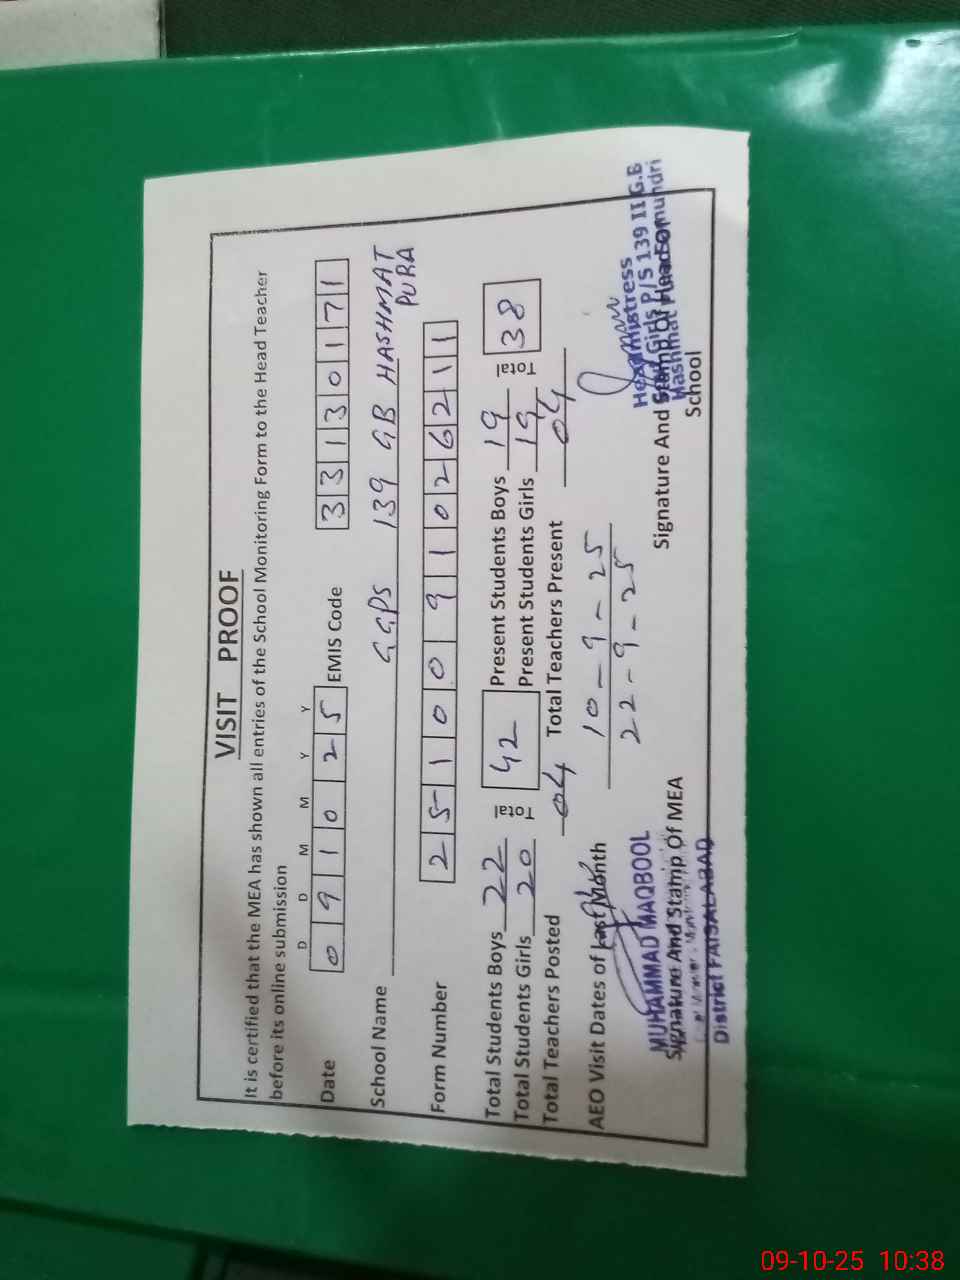 VISIT PROOF
It is certified that the MEA has shown all entries of the School Monitoring Form to the Head Teacher
before its online submission
D D M M Y Y
Date 0 9 1 0 2 5 EMIS Code 3 3 1 3 0 1 7 1
School Name GGPS 139 GB HASHMAT
PURA
Form Number 2 5 1 0 0 9 1 0 2 6 2 1 1
Total Students Boys 22 Total 42 Present Students Boys 19 Total 38
Total Students Girls 20 Present Students Girls 19
Total Teachers Posted 04 Total Teachers Present 04
AEO Visit Dates of Last Month 10-9-25
22-9-25
MUHAMMAD MAQBOOL
Signature And Stamp Of MEA
District FAISALABAD
Head Mistress
Girls P/S 139 II G.B
Signature And Stamp Of Head Of
School
09-10-25 10:38